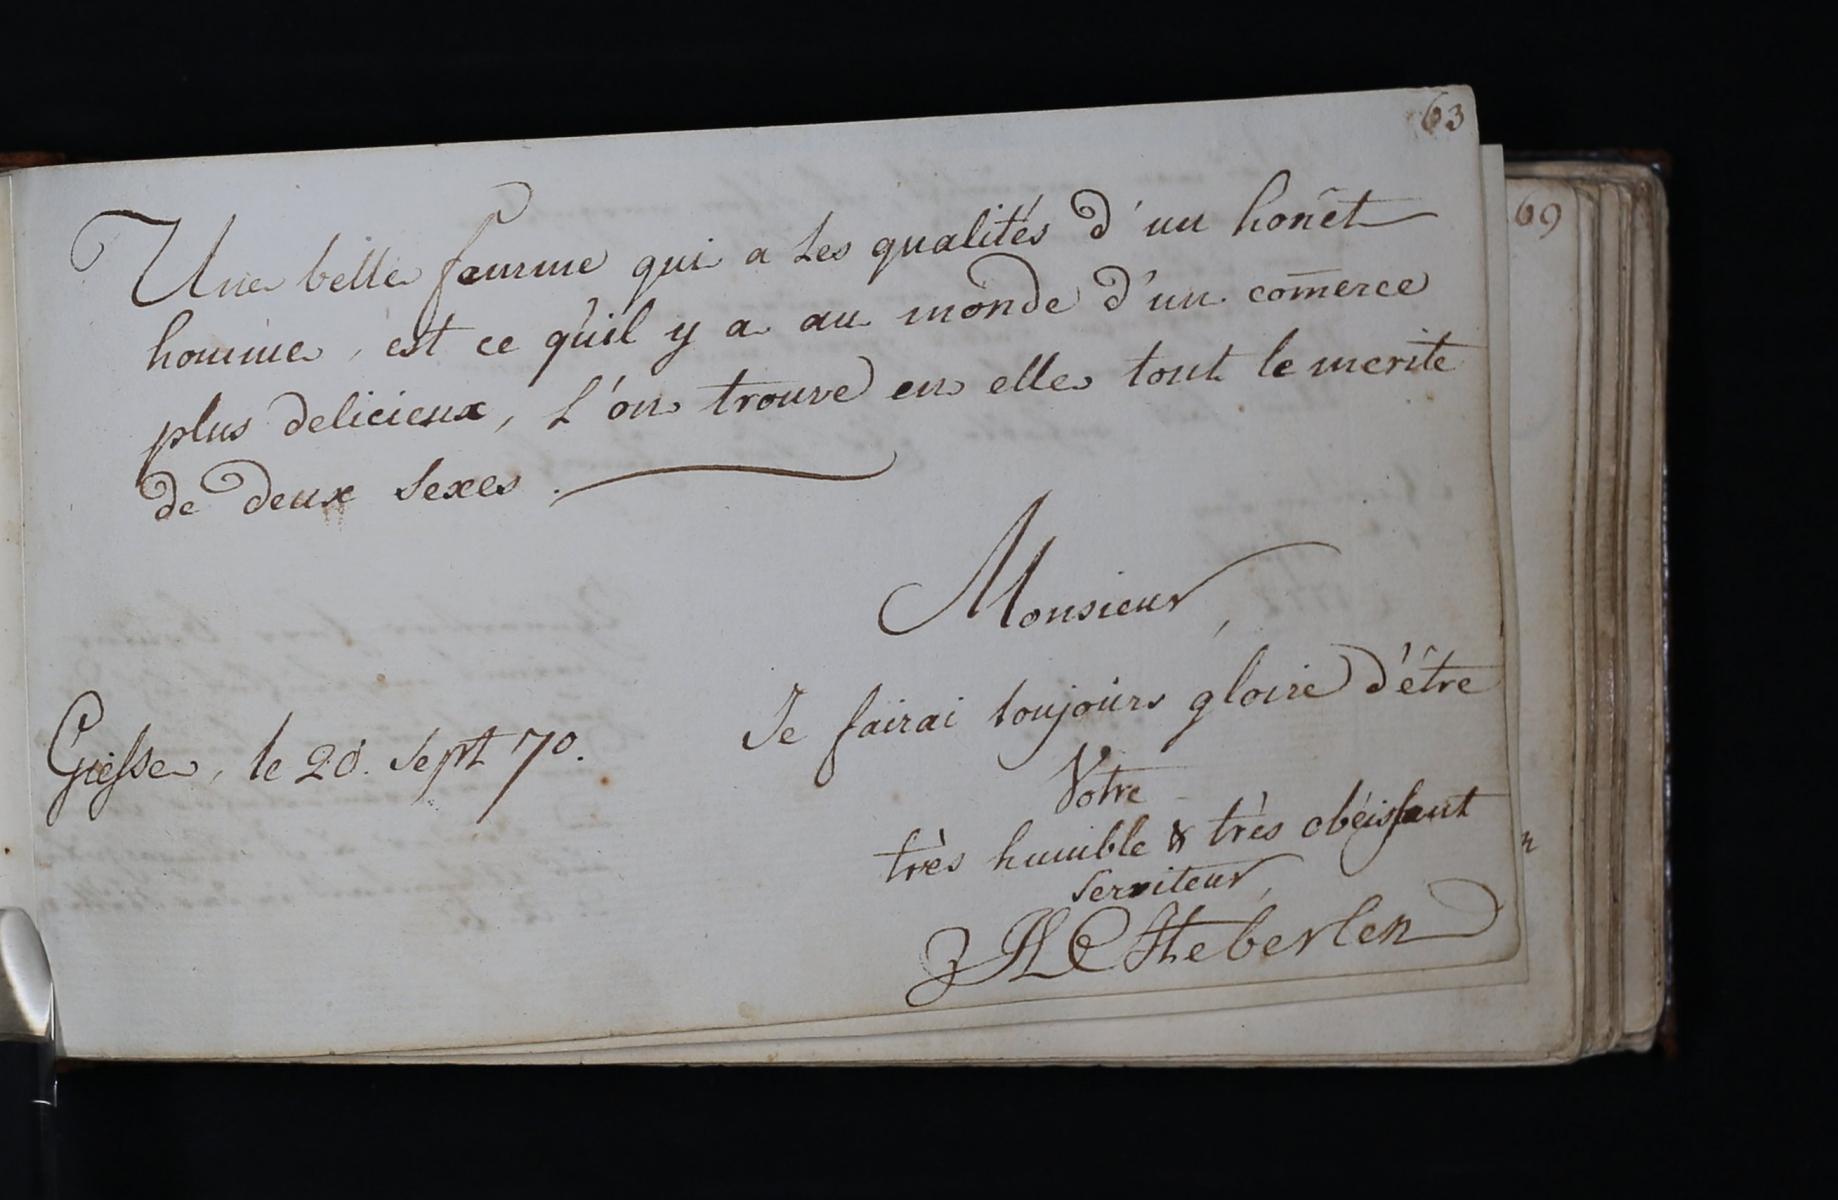 63
69
Une belle femme qui a les qualités d'un honêt
homme, est ce qu'il y a au monde d'un com̄erce
plus delicieux, l'on trouve en elle tout le merite
de deux sexes.
Monsieur,
Je fairai toujours gloire d'être
Giesse, le 20. Sept 70.
Votre
très humble & très obéissant
serviteur,